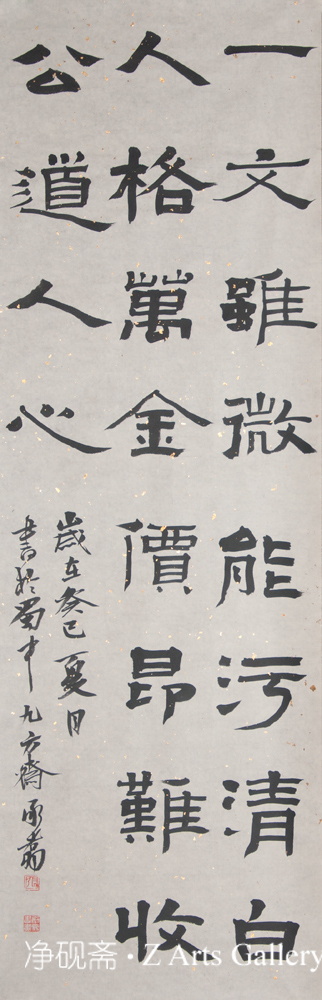 一文雖微能污清白
人格萬金價昂難收
公道人心
歲在癸巳夏日
書於蜀中九方齋
净砚斋·Z Arts Gallery